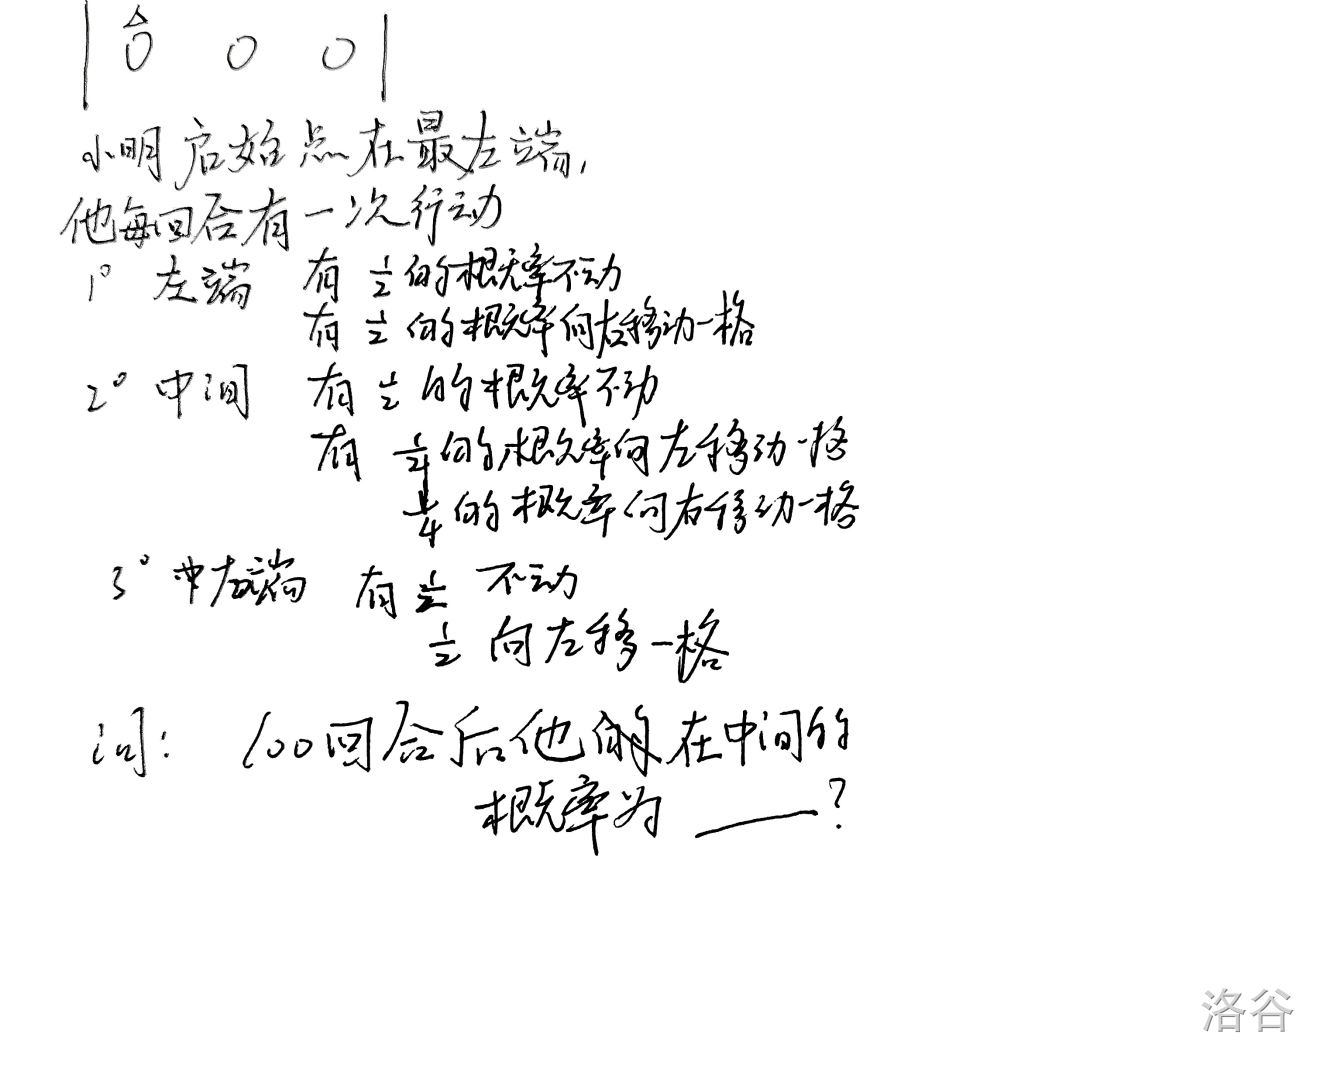 | 0 0 0 |
小明启始点在最左端,
他每回合有一次行动
1° 左端 有 1/2 的概率不动
有 1/2 的概率向右移动一格
2° 中间 有 1/2 的概率不动
有 1/4 的概率向左移动一格
1/4 的概率向右移动一格
3° 右端 有 1/2 不动
1/2 向左移一格
问: 100回合后他 在中间的
概率为 ——?
洛谷